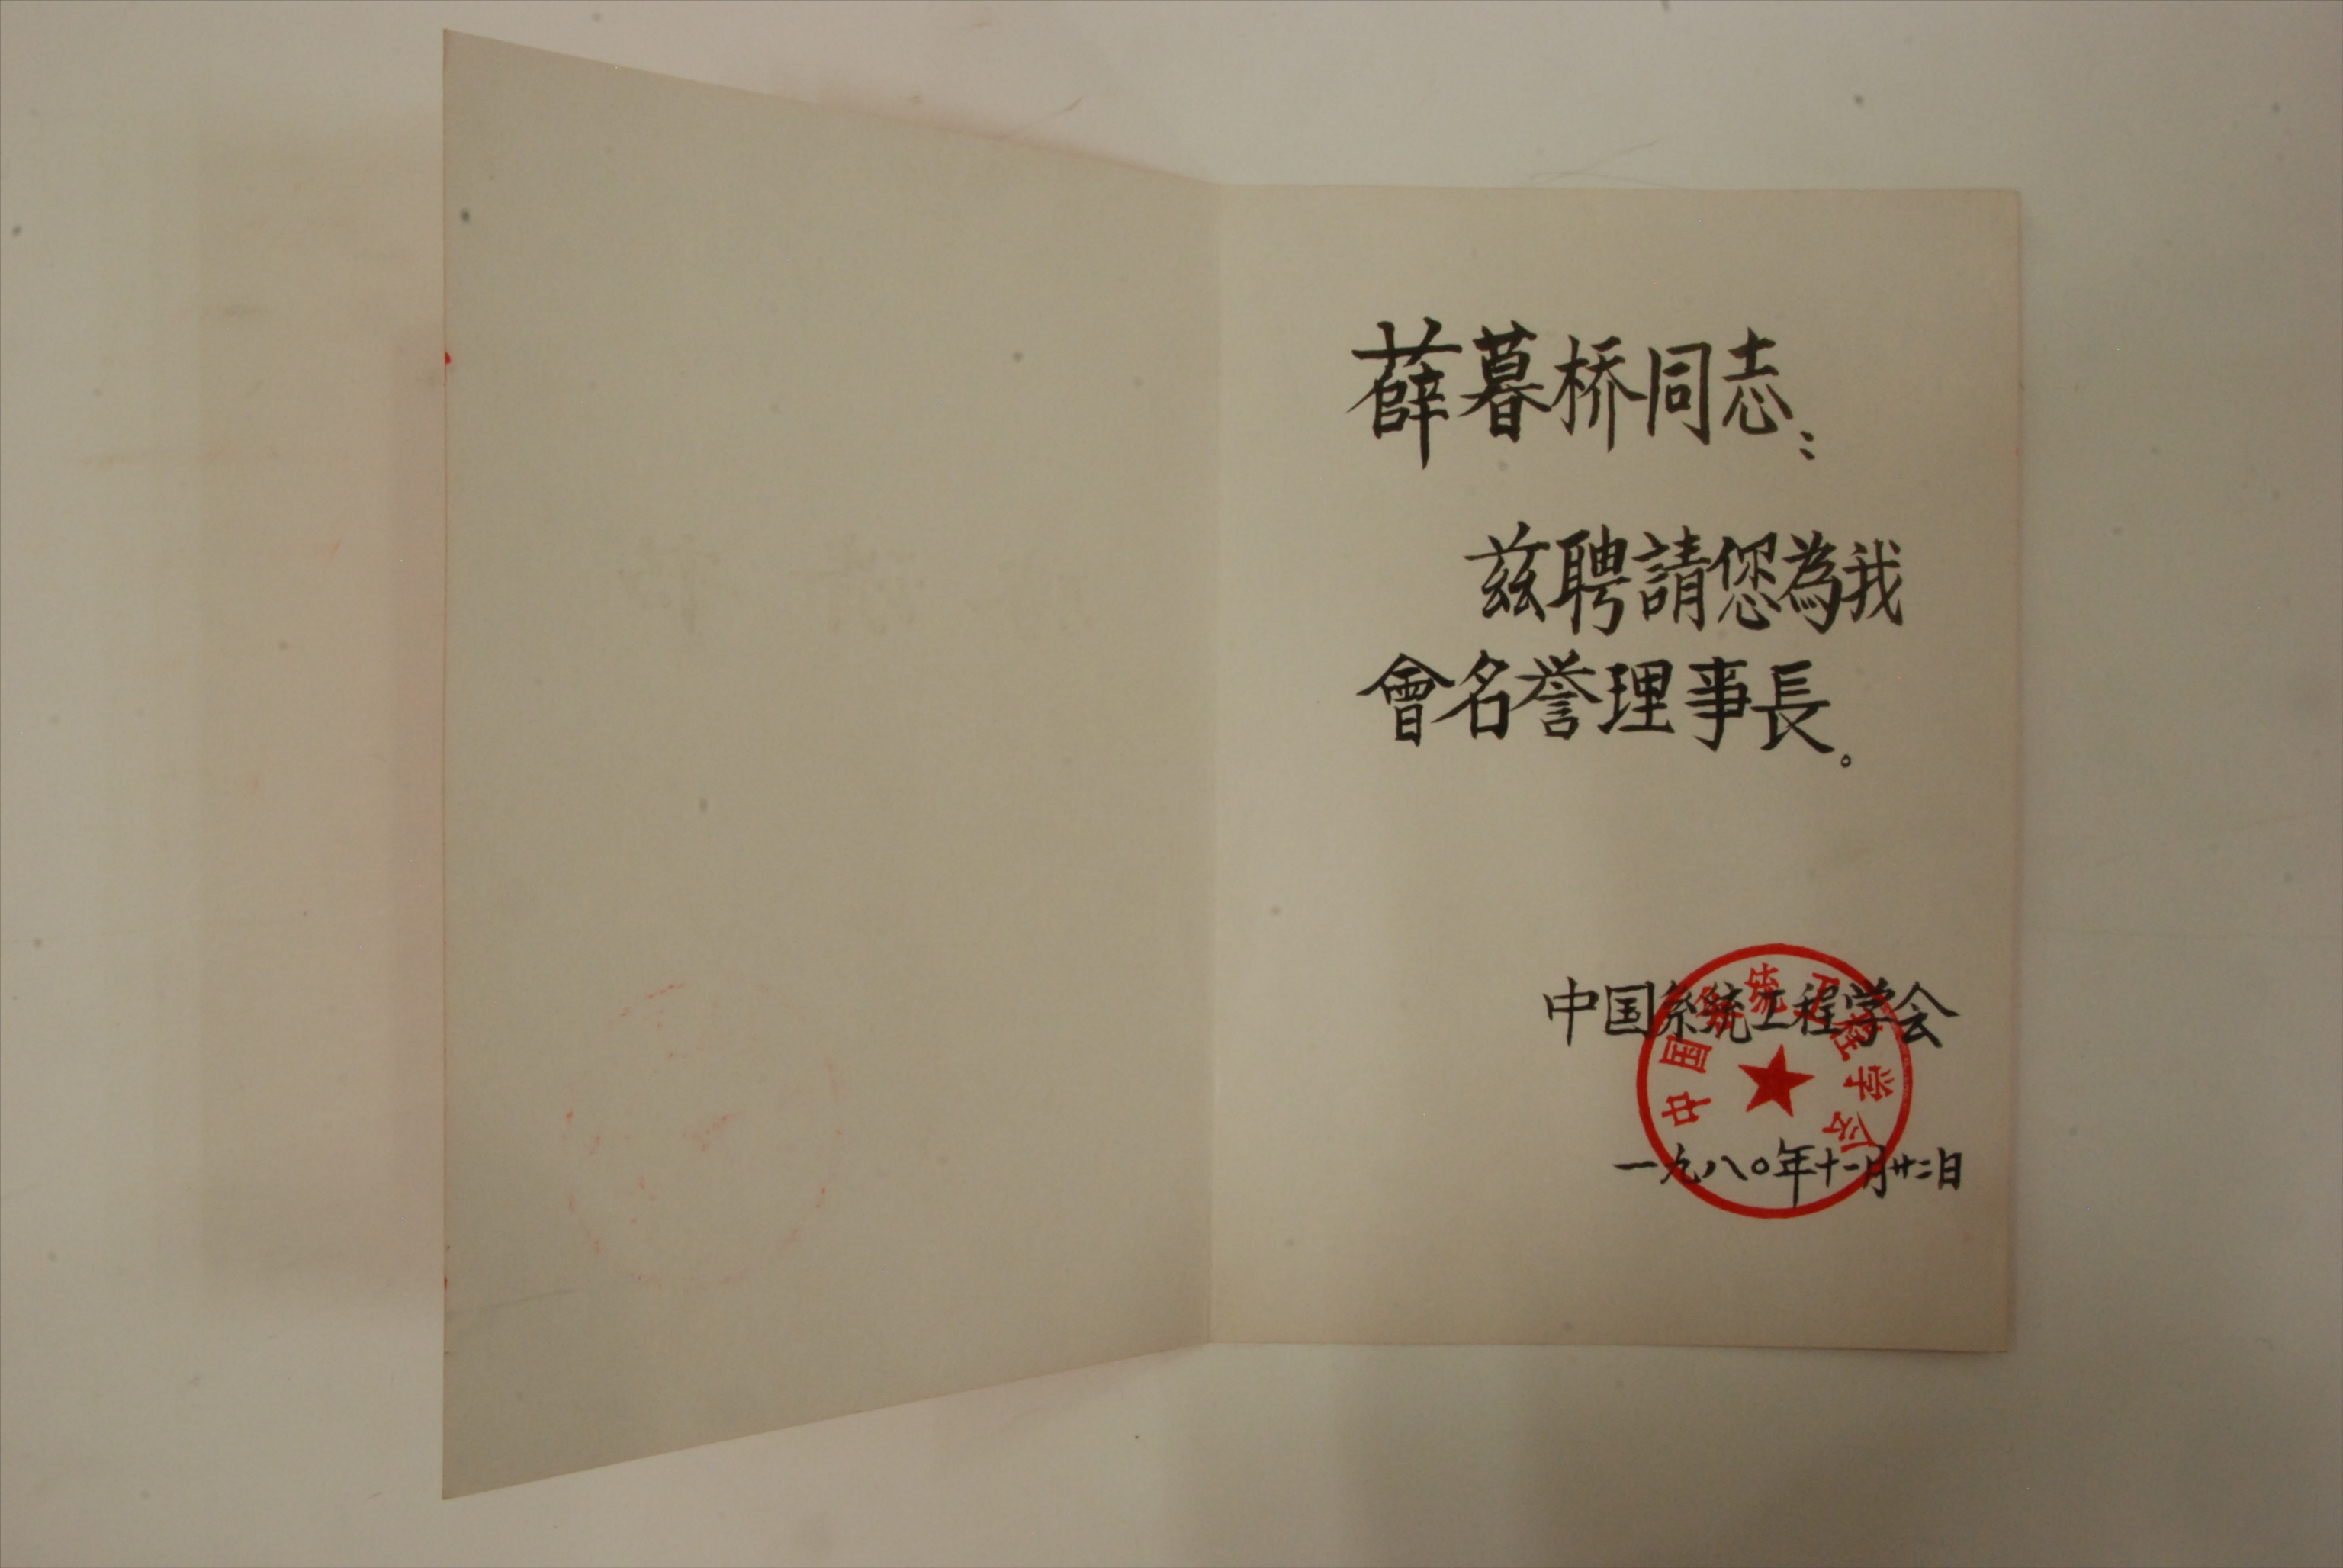 薛暮桥同志：
兹聘請您為我
會名誉理事長。
中国系統工程学会
一九八〇年十一月廿二日
中国系统工程学会